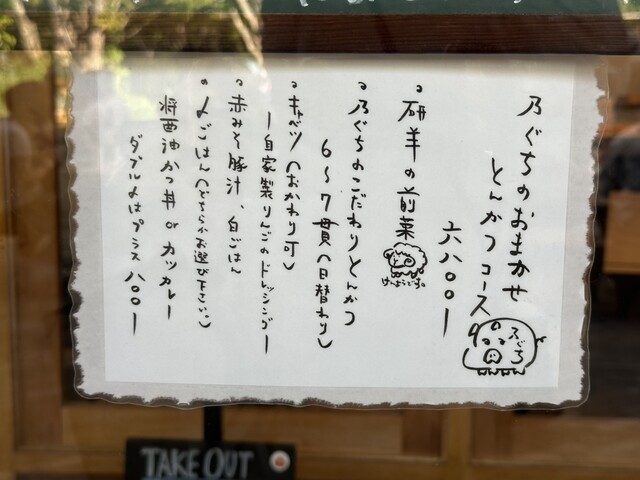 乃ぐちのおまかせ
とんかつコース
六八〇〇ー
乃ぐち
・研羊の前菜
けんようです。
・乃ぐちのこだわりとんかつ
6〜7貫(日替わり)
・キャベツ(おかわり可)
ー自家製りんごのドレッシングー
・赤みそ豚汁、白ごはん
・〆ごはん(どちらかお選び下さい。)
将西油かつ丼 or カツカレー
ダブル〆はプラス八〇〇ー
TAKE OUT